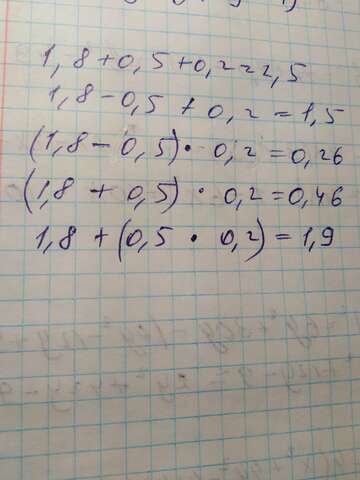 1,8 + 0,5 + 0,2 = 2,5
1,8 - 0,5 + 0,2 = 1,5
(1,8 - 0,5) · 0,2 = 0,26
(1,8 + 0,5) · 0,2 = 0,46
1,8 + (0,5 · 0,2) = 1,9